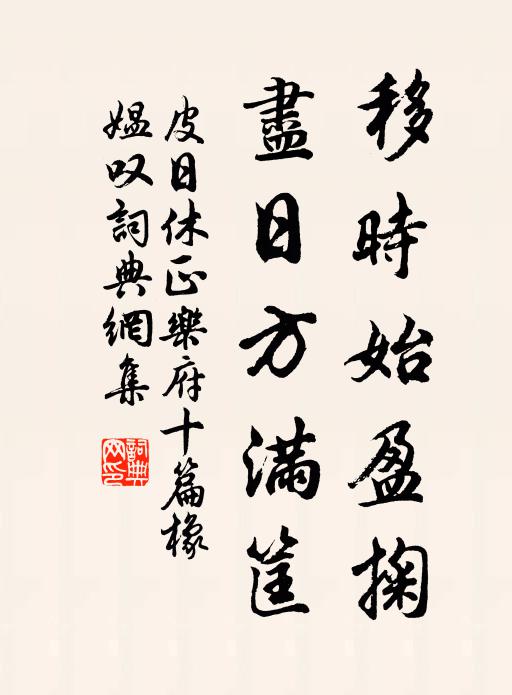 移時始盈掬
盡日方滿筐
皮日休正樂府十篇橡
媼叹詞典網集
詞典网印